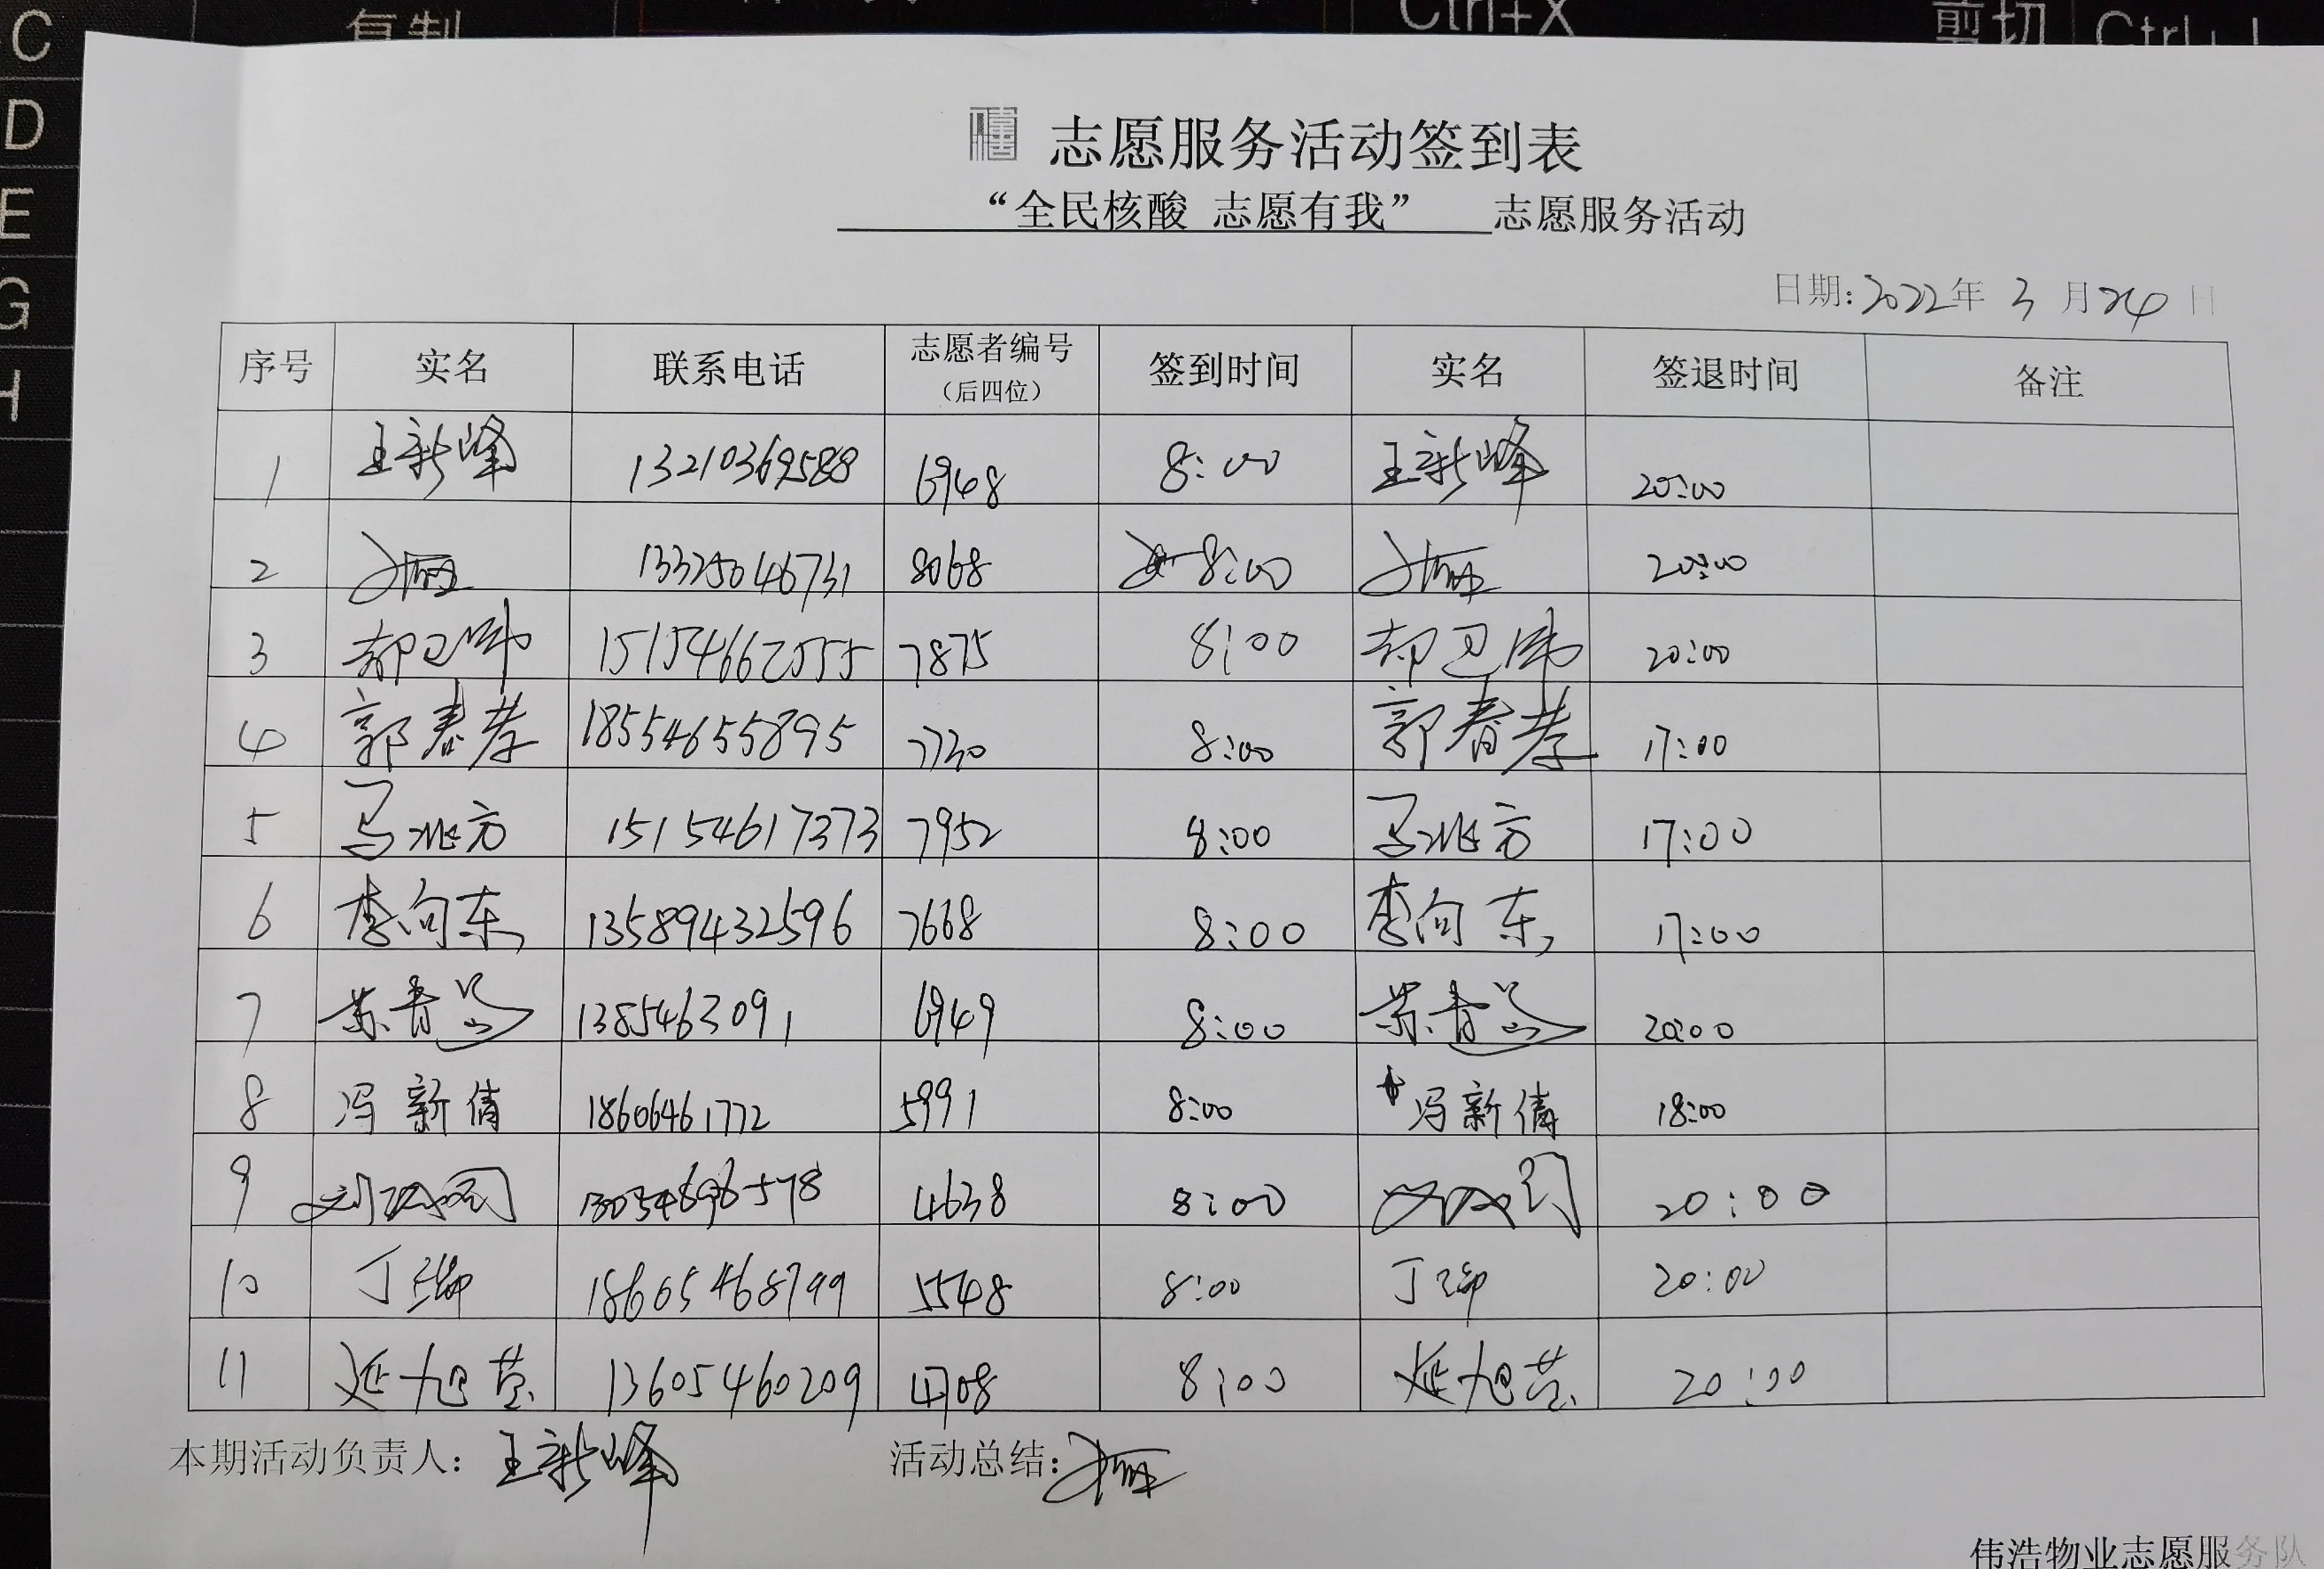 C 复制 Ctrl+X 剪切 Ctrl+
D
E
G
H
志愿服务活动签到表
“全民核酸 志愿有我” 志愿服务活动
日期:2022年 3 月24日
序号 实名 联系电话 志愿者编号（后四位） 签到时间 实名 签退时间 备注
1 王新峰 13210369588 6948 8:00 王新峰 20:00
2 13325046731 8068 8:00 20:00
3 15154662555 7875 8:00 20:00
4 郭春孝 18554655895 7730 8:00 郭春孝 17:00
5 马兆方 15154617373 7952 8:00 马兆方 17:00
6 李向东 13589432596 7668 8:00 李向东 17:00
7 1385463091 6949 8:00 20:00
8 冯新倩 18606461772 5991 8:00 冯新倩 18:00
9 4638 8:00 20:00
10 丁 18665468799 5548 8:00 丁 20:00
11 延旭芸 13605460209 4708 8:00 延旭芸 20:00
本期活动负责人: 王新峰 活动总结:
伟浩物业志愿服务队